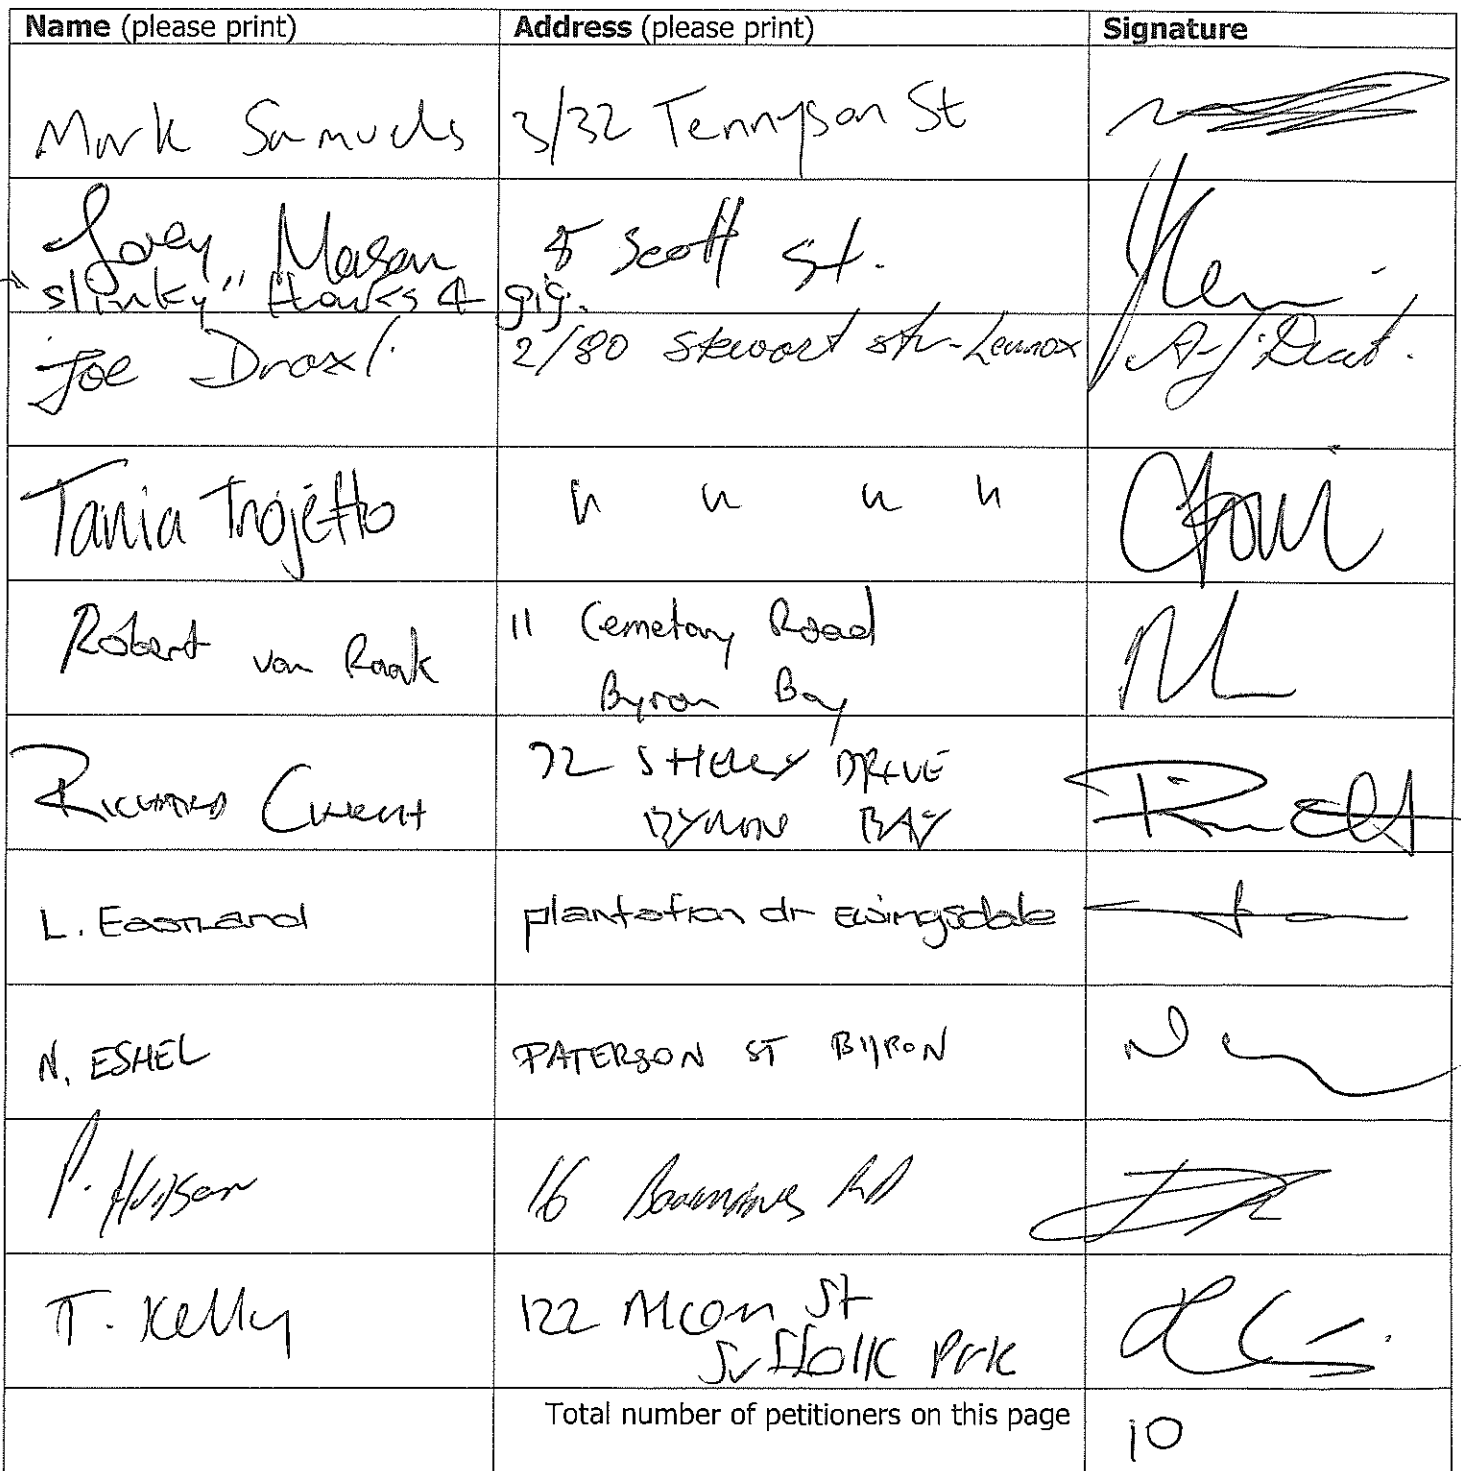 Name (please print) Address (please print) Signature
Mark Samuels 3/32 Tennyson St
Joey Mason 5 Scott St.
"slinky" thanks 4 gig.
Joe Draxl. 2/80 Stewart str-Lennox
Tania Trojetto " " " "
Robert van Raak 11 Cemetary Road
Byron Bay
RICHARD 72 SHELLY DRIVE
BYRON BAY
L. Eastland plantation dr ewingsdale
N. ESHEL PATERSON ST BYRON
P. Hudson 16 RD
T. Kelly 122 Alcorn St
Suffolk Prk
Total number of petitioners on this page 10